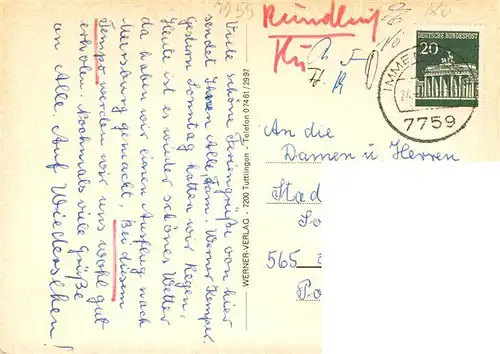 Viele schöne Feriengrüße von hier
sendet Ihnen Alle, Fam. Werner Kemper.
Gestern Sonntag hatten wir Regen,
Heute ist es wieder schönes Wetter
da haben wir einen Ausflug nach
Meersburg gemacht. Bei diesem
Tempo werden wir uns wohl gut
erholen. Nochmals viele Grüße
an Alle. Auf Wiedersehen!
WERNER-VERLAG · 7200 Tuttlingen · Telefon 07461/2997
Rundling
DEUTSCHE BUNDESPOST
20
IMME
7759
An die
Damen u. Herren
565